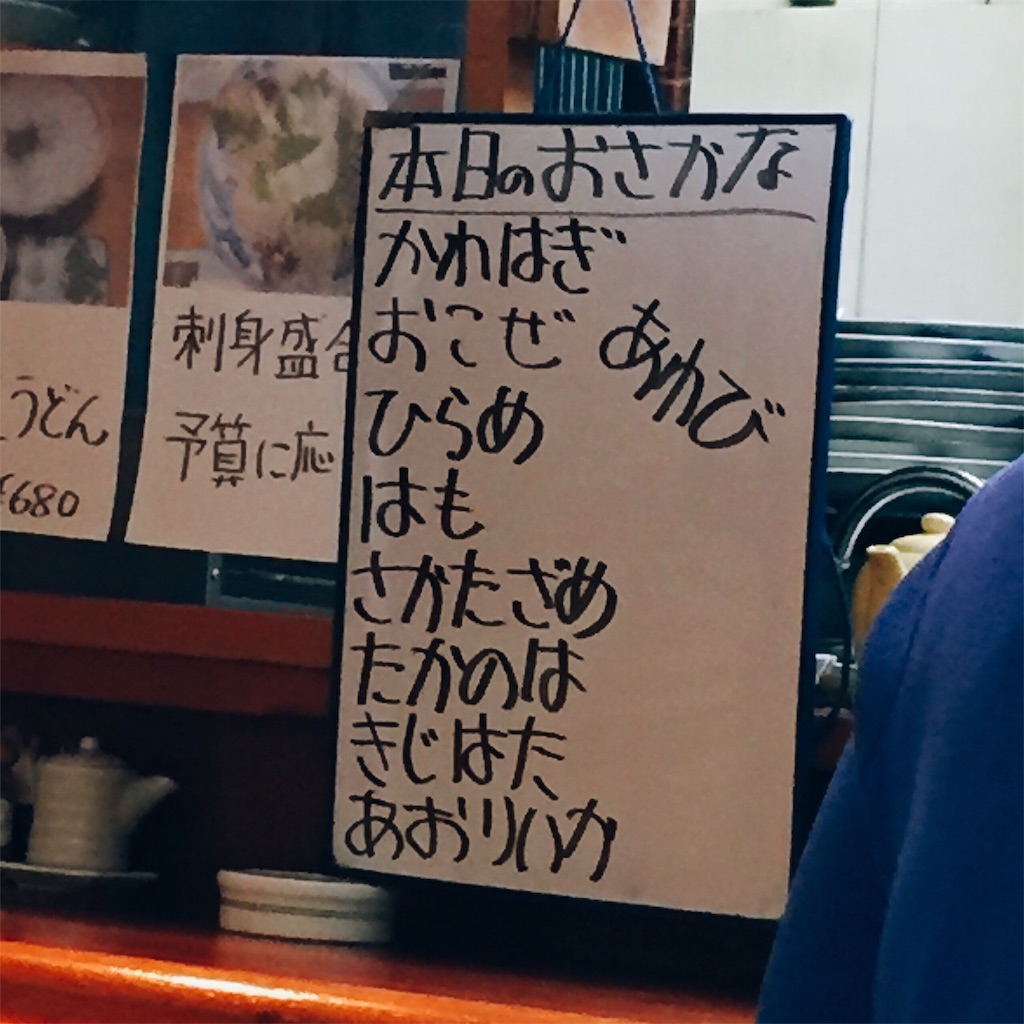 本日のおさかな
かわはぎ
おこぜ
あわび
ひらめ
はも
さかたざめ
たかのは
きじはた
あおりいか
刺身盛合
予算に応
うどん
¥680